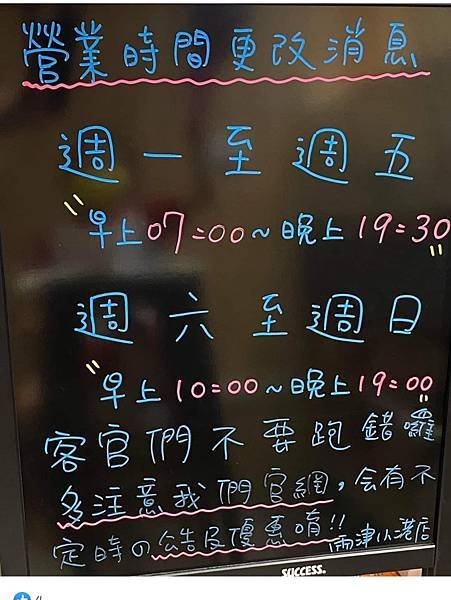 營業時間更改消息
週一至週五
早上07:00~晚上19:30
週六至週日
早上10:00~晚上19:00
客官們不要跑錯囉
多注意我們官網,会有不
定時の公告及優惠唷!!
雨津小港店
SUCCESS.